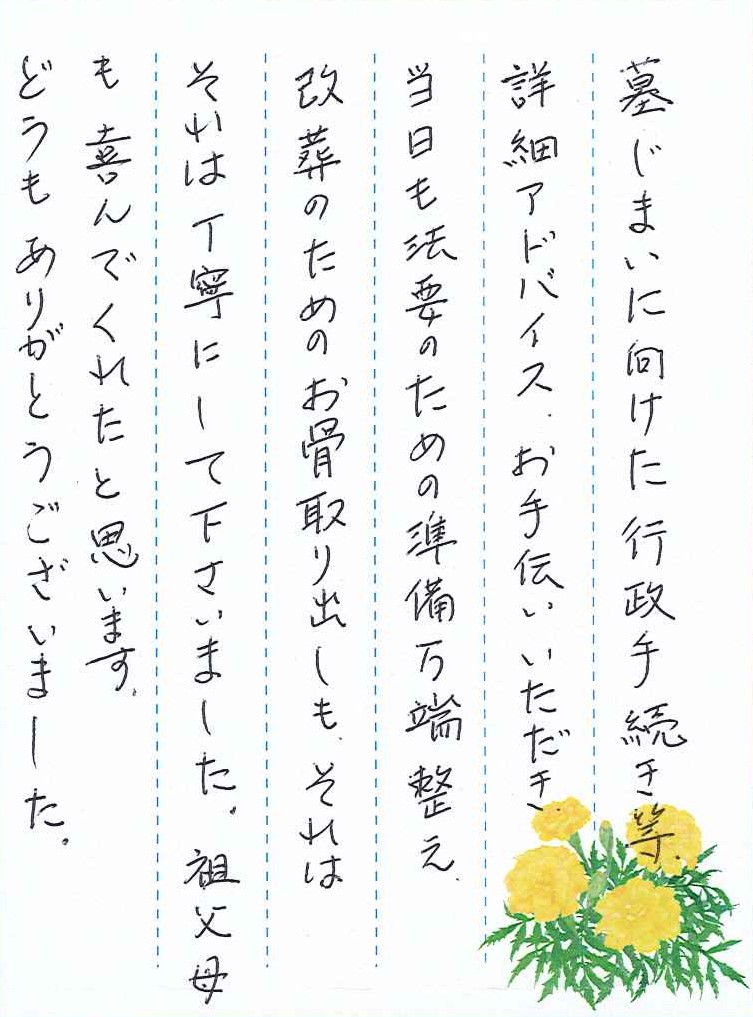 墓じまいに向けた行政手続き等、
詳細アドバイス、お手伝いいただき、
当日も法要のための準備万端整え、
改葬のためのお骨取り出しも、それは
それは丁寧にして下さいました。祖父母
も喜んでくれたと思います。
どうもありがとうございました。